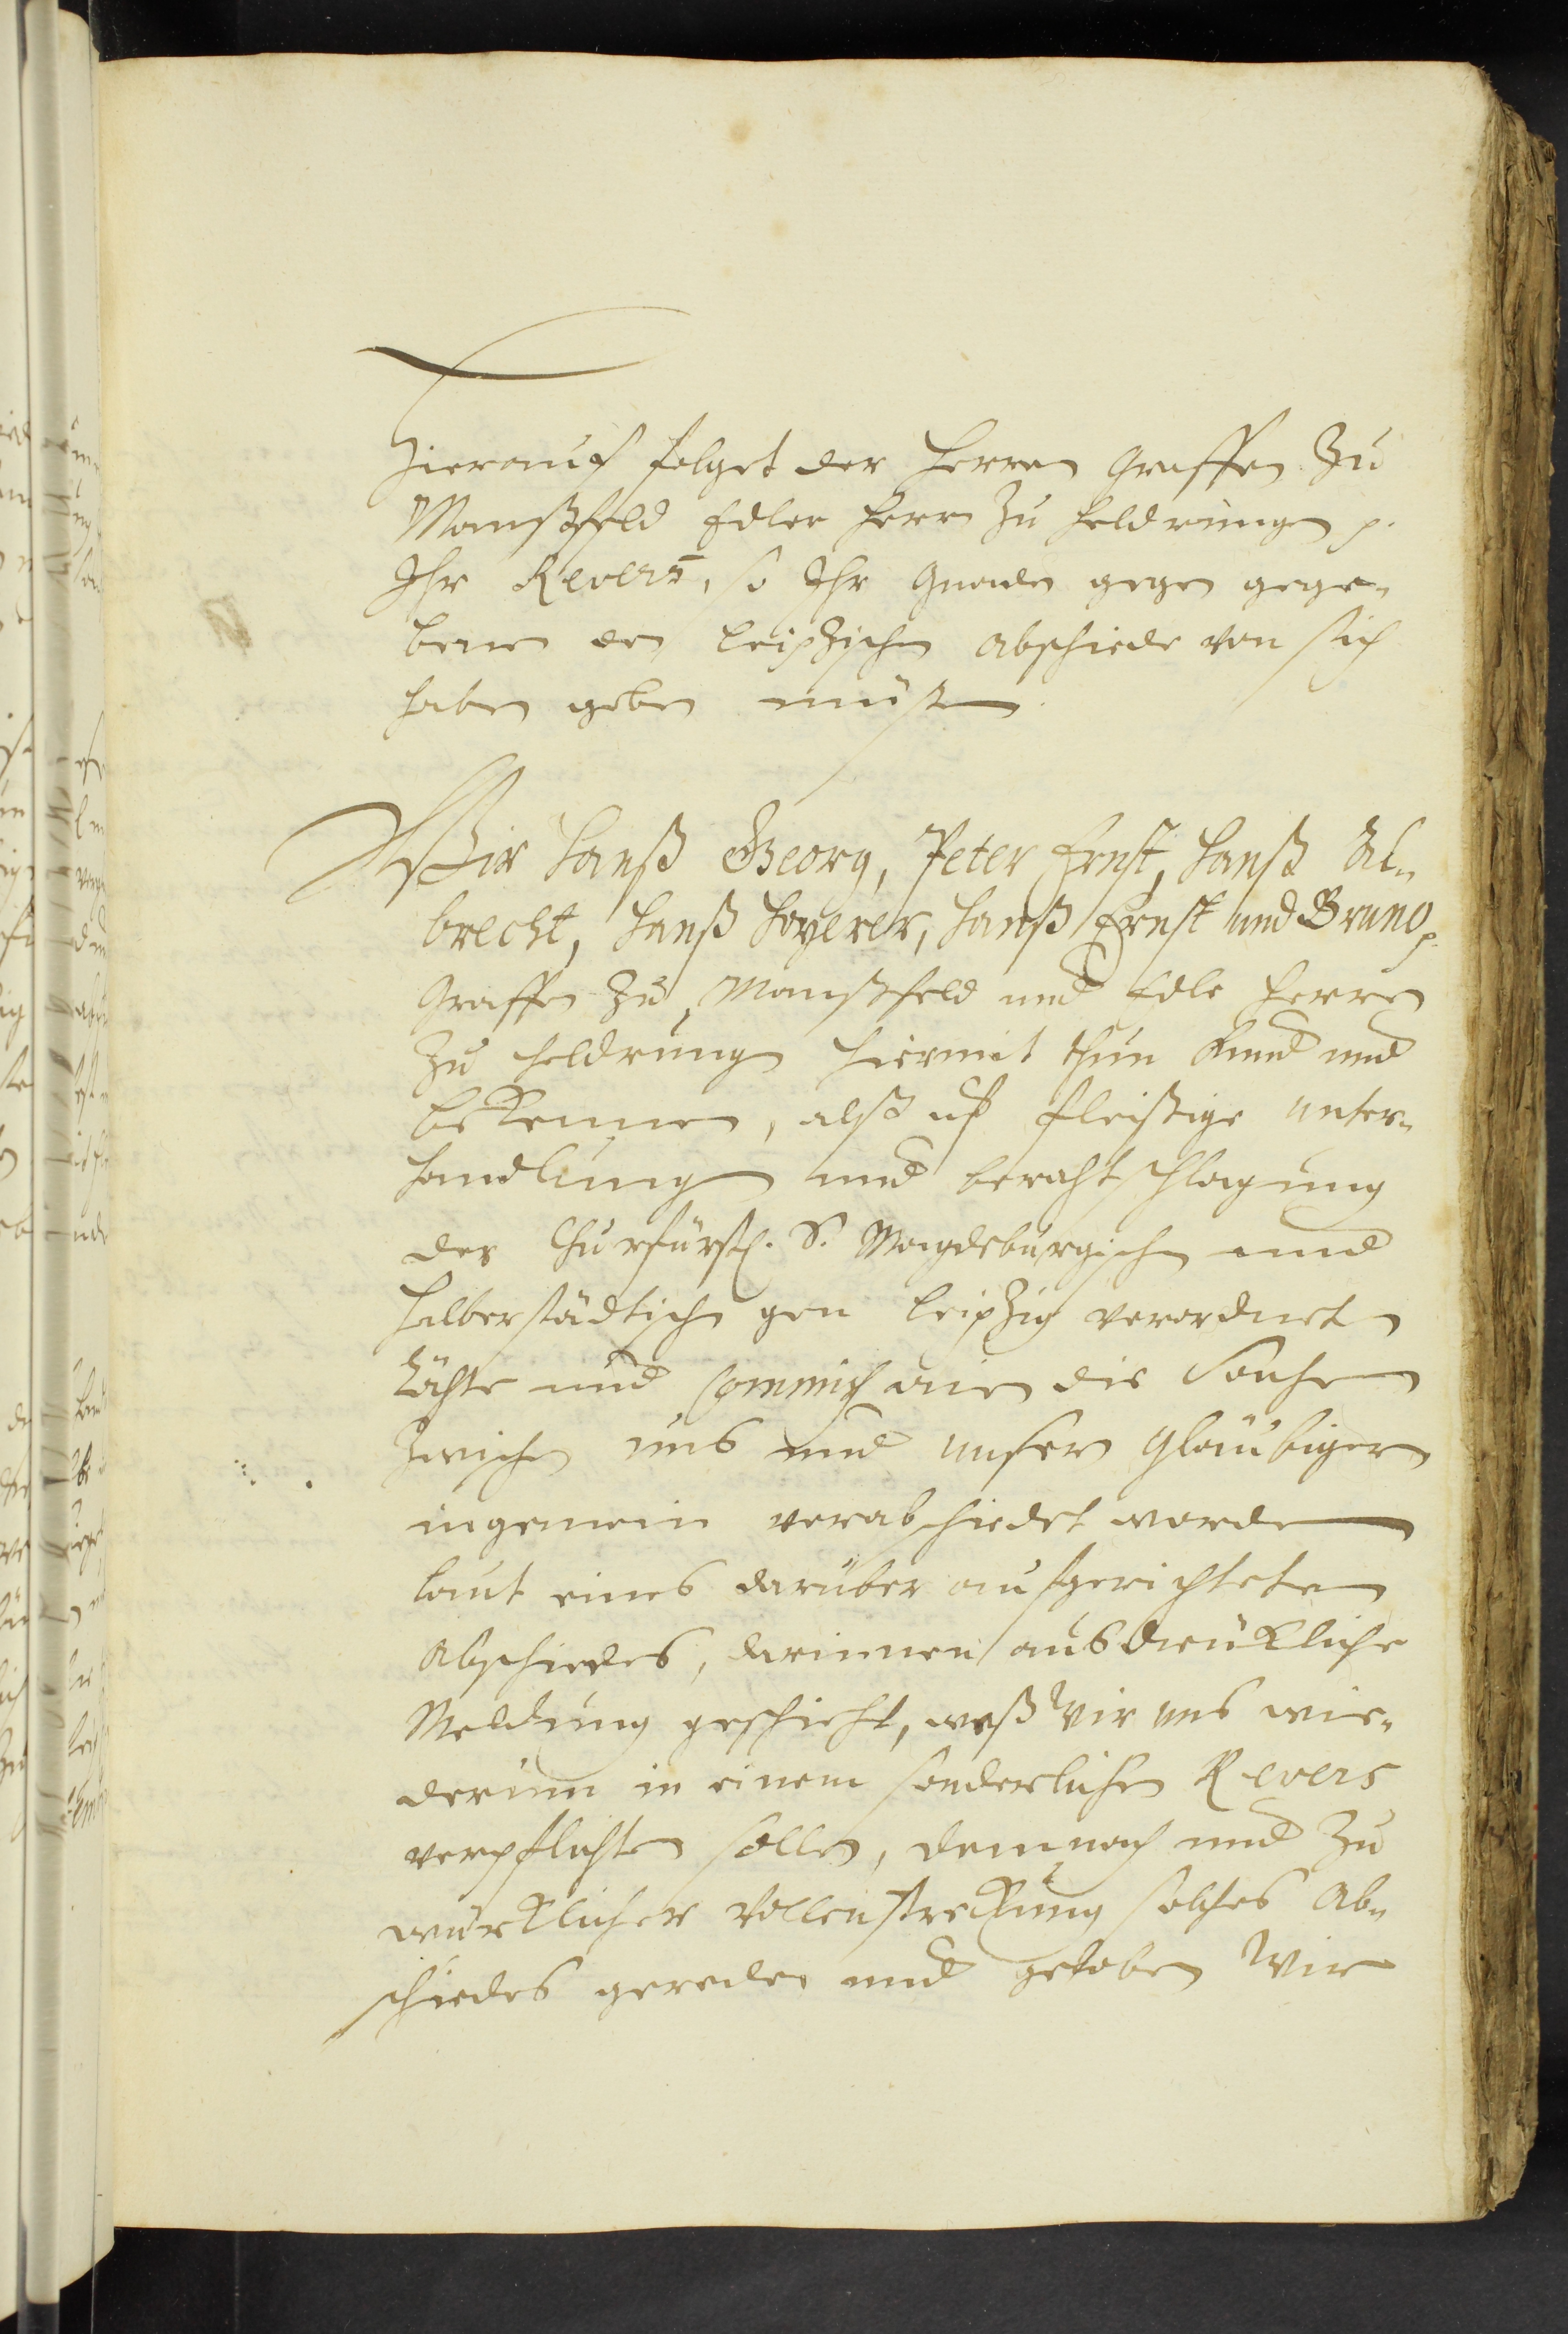 Hierauf folget der Herren Graffen zu
Manßfeld Edler Herrn zu Heldrungen p.
Ihr Revers, so Ihr Gnaden gegen gege-
benen den Leipzischen Abschiede von sich
haben geben müßen
Wir Hanß Georg, Peter Ernst, Hanß Al-
brecht, Hanß Hoyerer, Hanß Ernst und Bruno p.
Graffen zu Manßfeld und Edle Herren
zu Heldrungen hiermit thun kund und
bekennen, alß uff fleißige unter-
handlung und berahtschlagung
der Churfürstl. S. Magdeburgischen und
Halberstädtischen gen Leipzig verordneten
Rähte und Commissarien die Sachen
zwischen uns und unsern Gläubigern
ingemein verabschiedet worden
laut eines darüber aufgerichteten
Abschiedes, darinnen ausdrükliche
Meldung geschieht, weß Wir uns wie-
derumb in einem sonderlichen Revers
verpflichten sollen, demnach und zu
würklicher Vollenstrekung solches Ab-
schiedes gereden und geloben Wir